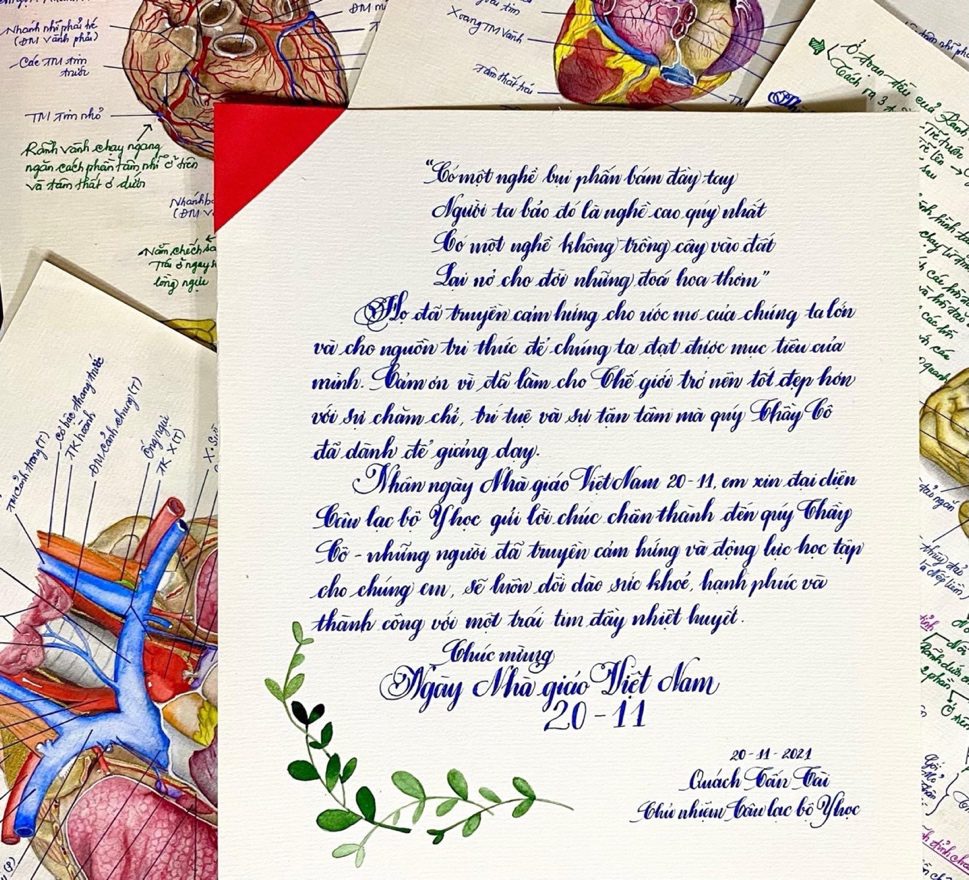 Nhánh nhĩ phải bé
(ĐM vành phải)
Các TM tim
trước
TM tim nhỏ
Rãnh vành chạy ngang
ngăn cách phần tâm nhĩ ở trên
và tâm thất ở dưới
Nằm chếch
Trái ở ngay
lồng ngực
Xoang TM vành
Tâm thất trái
TM
Ở đoạn đầu của Rãnh
Tách ra 3
"Có một nghề bụi phấn bám đầy tay
Người ta bảo đó là nghề cao quý nhất
Có một nghề không trồng cây vào đất
Lại nở cho đời những đoá hoa thơm"
Họ đã truyền cảm hứng cho ước mơ của chúng ta lớn
và cho nguồn tri thức để chúng ta đạt được mục tiêu của
mình. Cảm ơn vì đã làm cho Thế giới trở nên tốt đẹp hơn
với sự chăm chỉ, trí tuệ và sự tận tâm mà quý Thầy Cô
đã dành để giảng dạy.
Nhân ngày Nhà giáo Việt Nam 20-11, em xin đại diện
Câu lạc bộ Y học gửi lời chúc chân thành đến quý Thầy
Cô - những người đã truyền cảm hứng và động lực học tập
cho chúng em, sẽ luôn dồi dào sức khoẻ, hạnh phúc và
thành công với một trái tim đầy nhiệt huyết.
Chúc mừng
Ngày Nhà giáo Việt Nam
20-11
20-11-2021
Quách Tấn Tài
Chủ nhiệm Câu lạc bộ Y học
TM Cảnh trong (T)
Cơ bậc thang trước
TK hoành
ĐM Cảnh chung (T)
Ống ngực
TK X (T)